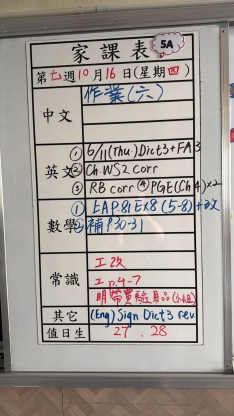 家課表
5A
第七週10月16日(星期四)
中文
作業(六)
英文
① 6/11(Thu.) Dict3+FA3
② Ch WS2 corr
③ RB corr ④ PGE(Ch4)x2
數學
① EAP.81 Ex8 (5-8)
② 補P30-31
常識
工改
工p.4-7
明帶實驗用品(小組)
其它
(Eng) Sign Dict3 rev
值日生
27、28